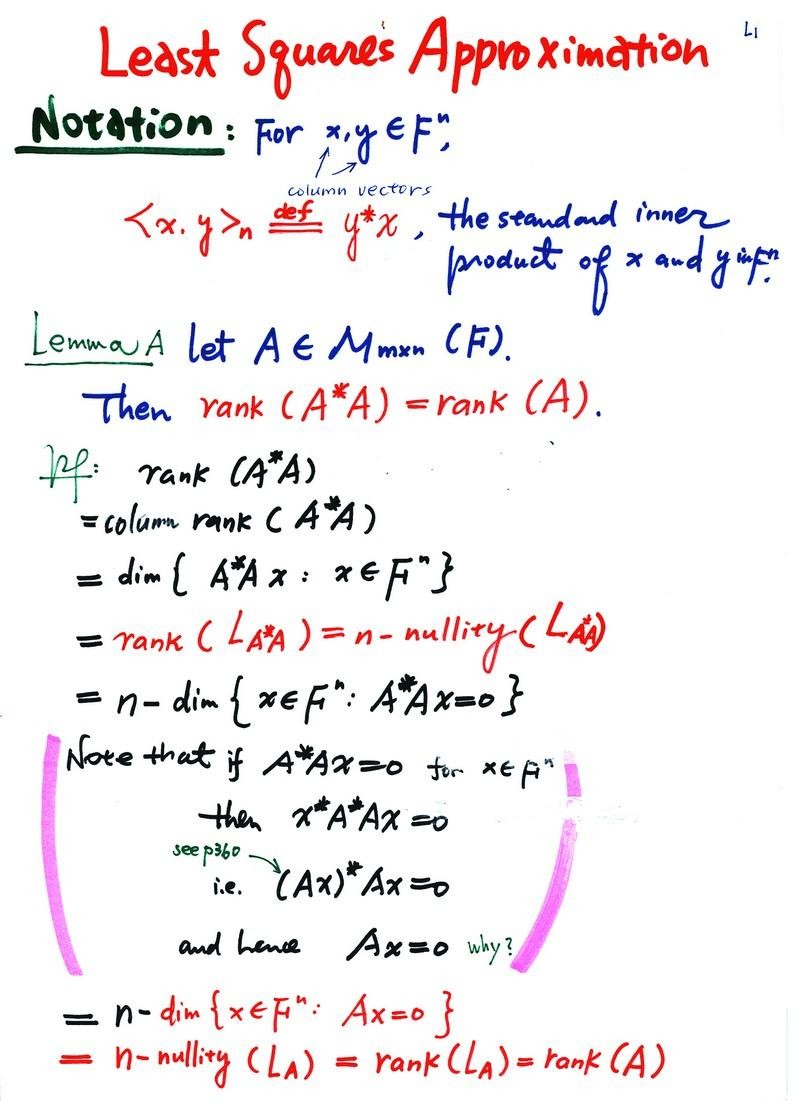 L1
Least Squares Approximation
Notation: For x, y ∈ Fⁿ,
column vectors
<x, y>ₙ ≝ y*x, the standard inner
product of x and y in Fⁿ.
Lemma A let A ∈ Mm×n (F).
Then rank (A*A) = rank (A).
pf: rank (A*A)
= column rank (A*A)
= dim { A*Ax : x ∈ Fⁿ }
= rank (L_A*A) = n - nullity (L_A*A)
= n - dim { x ∈ Fⁿ : A*Ax=0 }
Note that if A*Ax=0 for x ∈ Fⁿ
then x*A*Ax=0
see p360
i.e. (Ax)*Ax=0
and hence Ax=0 why?
= n - dim { x ∈ Fⁿ : Ax=0 }
= n - nullity (L_A) = rank (L_A) = rank (A)